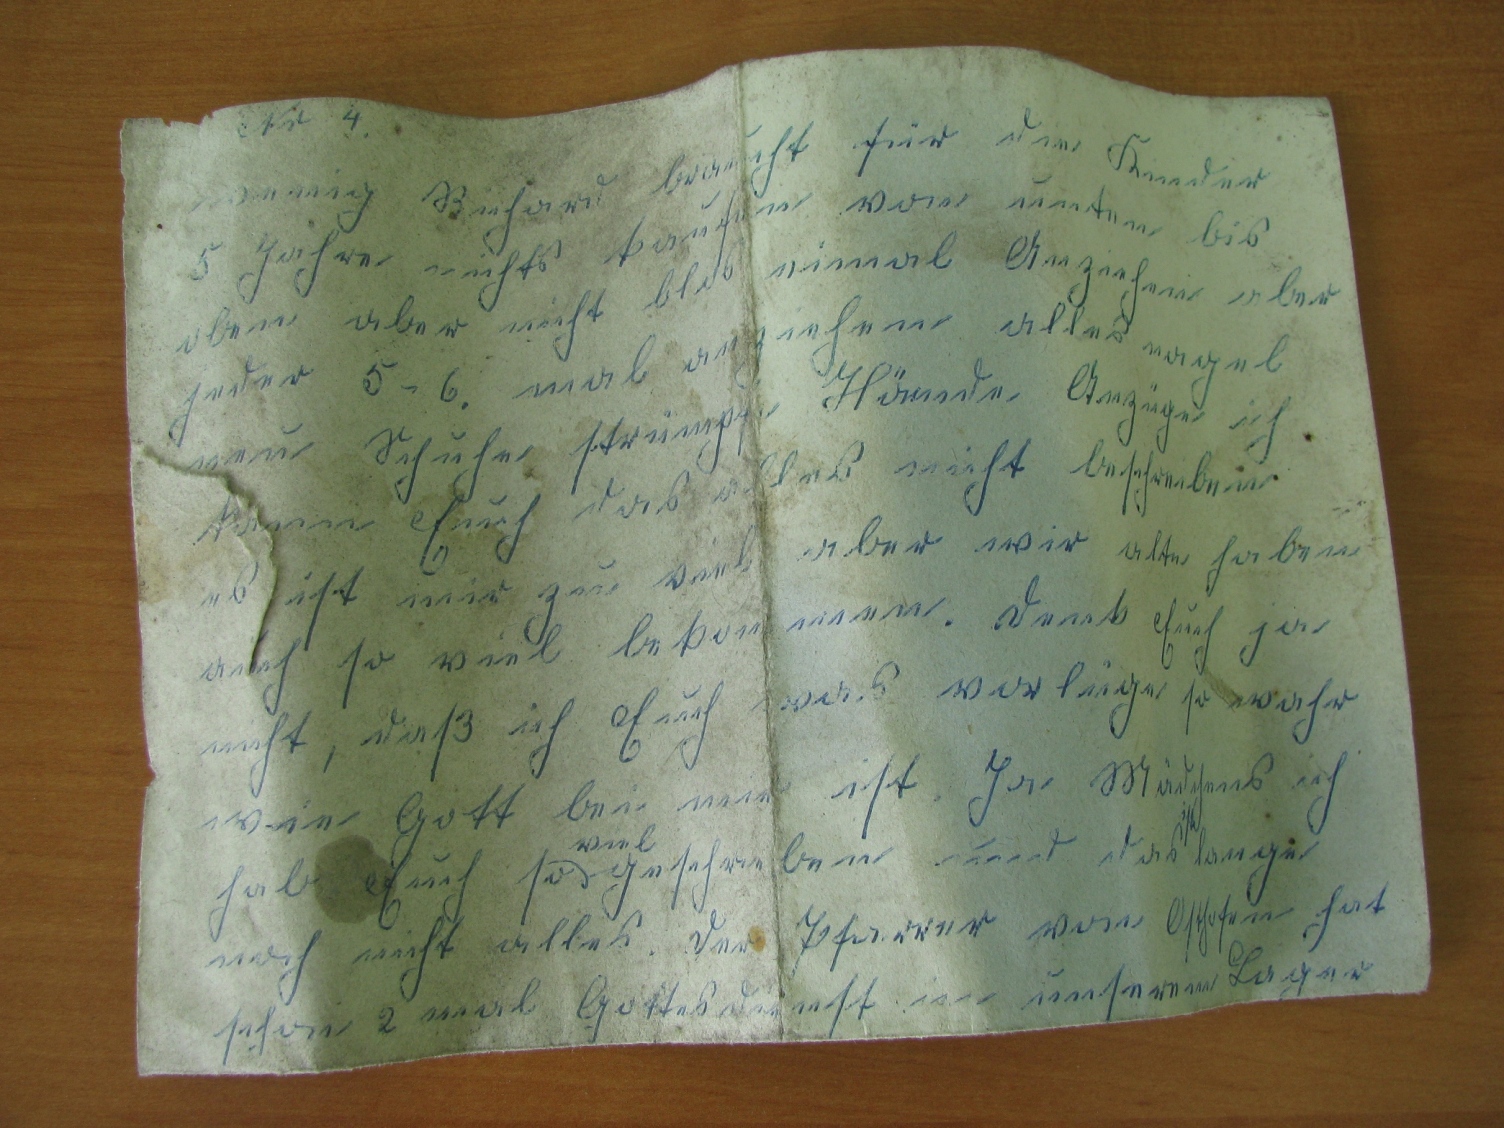 Nr 4.
wenig Richard braucht für die Kinder
5 Jahre nichts kaufen von unten bis
oben aber nicht blos einmal Anziehen aber
jeder 5-6. mal anziehen alles nagel
neu Schuhe strümpfe Hämde Anzüge ich
kann Euch das alles nicht beschreiben
es ist mir zu viel aber wir alte haben
auch so viel bekommen. Denkt Euch ja
nicht, daß ich Euch was vorlüge so wahr
wie Gott bei mir ist. Ja Mädchens ich
hab Euch so viel geschrieben und das ist lange
noch nicht alles. Der Pfarrer von Osthofen hat
schon 2 mal Gottesdienst in unserem Lager